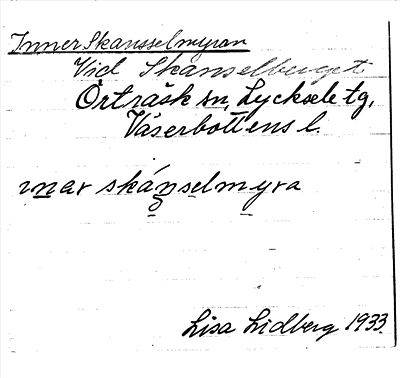 InnerSkansselmyran
Vid Skanselberget
Örträsk sn, Lycksele tg,
Väserbottens l.
ınar skánselmyra
Lisa Lidberg 1933